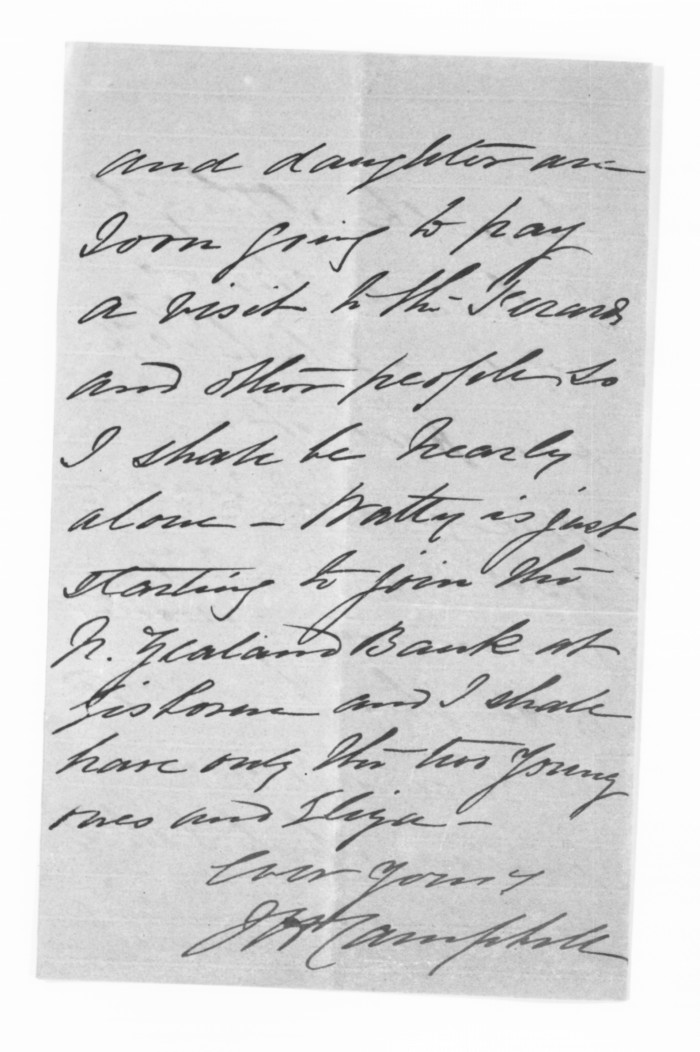 and daughter are
soon going to pay
a visit to the
and other people so
I shall be nearly
alone – Watty is just
starting to join the
N. Zealand Bank at
Gisborne and I shall
have only the two young
ones and Eliza –
Ever yours
J H Campbell